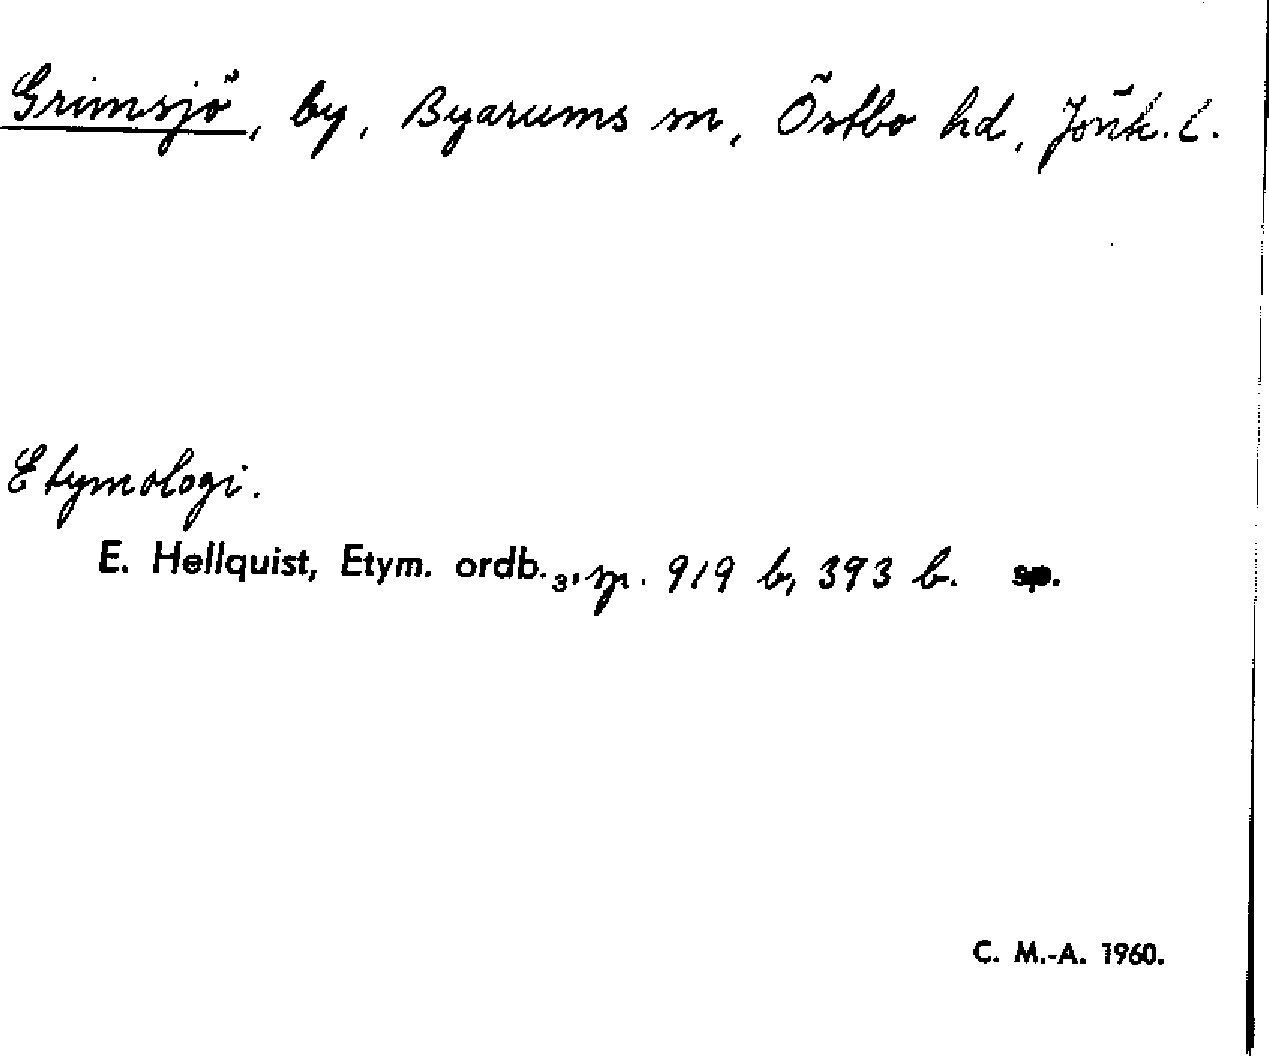 Grimsjö, by, Byarums sn, Östbo hd, Jönk. l.
Etymologi.
E. Hellquist, Etym. ordb.3, sp. 919 b, 393 b. sp.
C. M.-A. 1960.